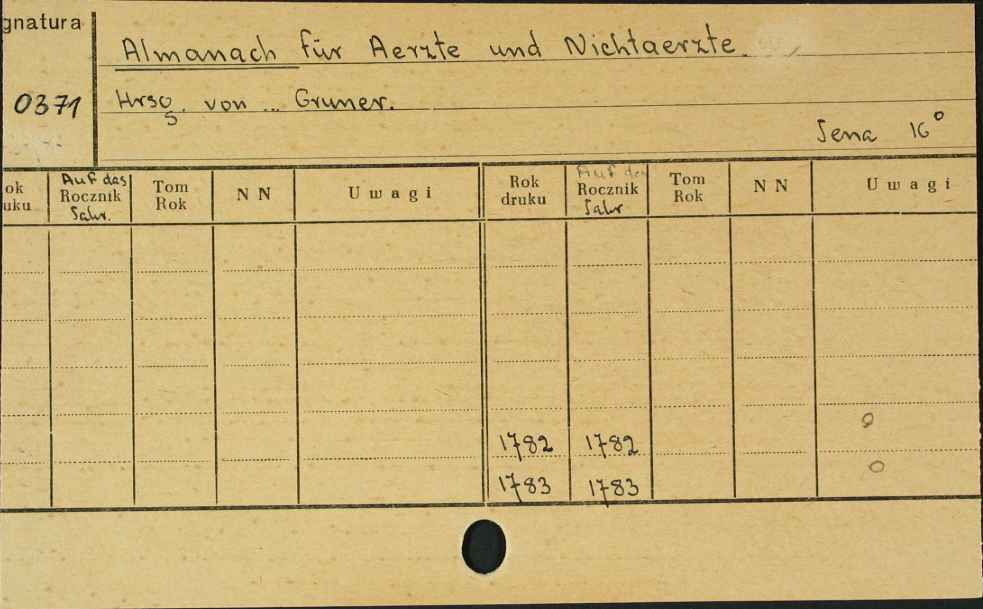 gnatura
Almanach für Aerzte und Nichtaerzte
0371
Hrsg. von ... Gruner.
Jena 16°
ok
uku
Auf das
Rocznik
Jahr.
Tom
Rok
N N
U w a g i
Rok
druku
Auf das
Rocznik
Jahr
Tom
Rok
N N
U w a g i
1782 1782
1783 1783